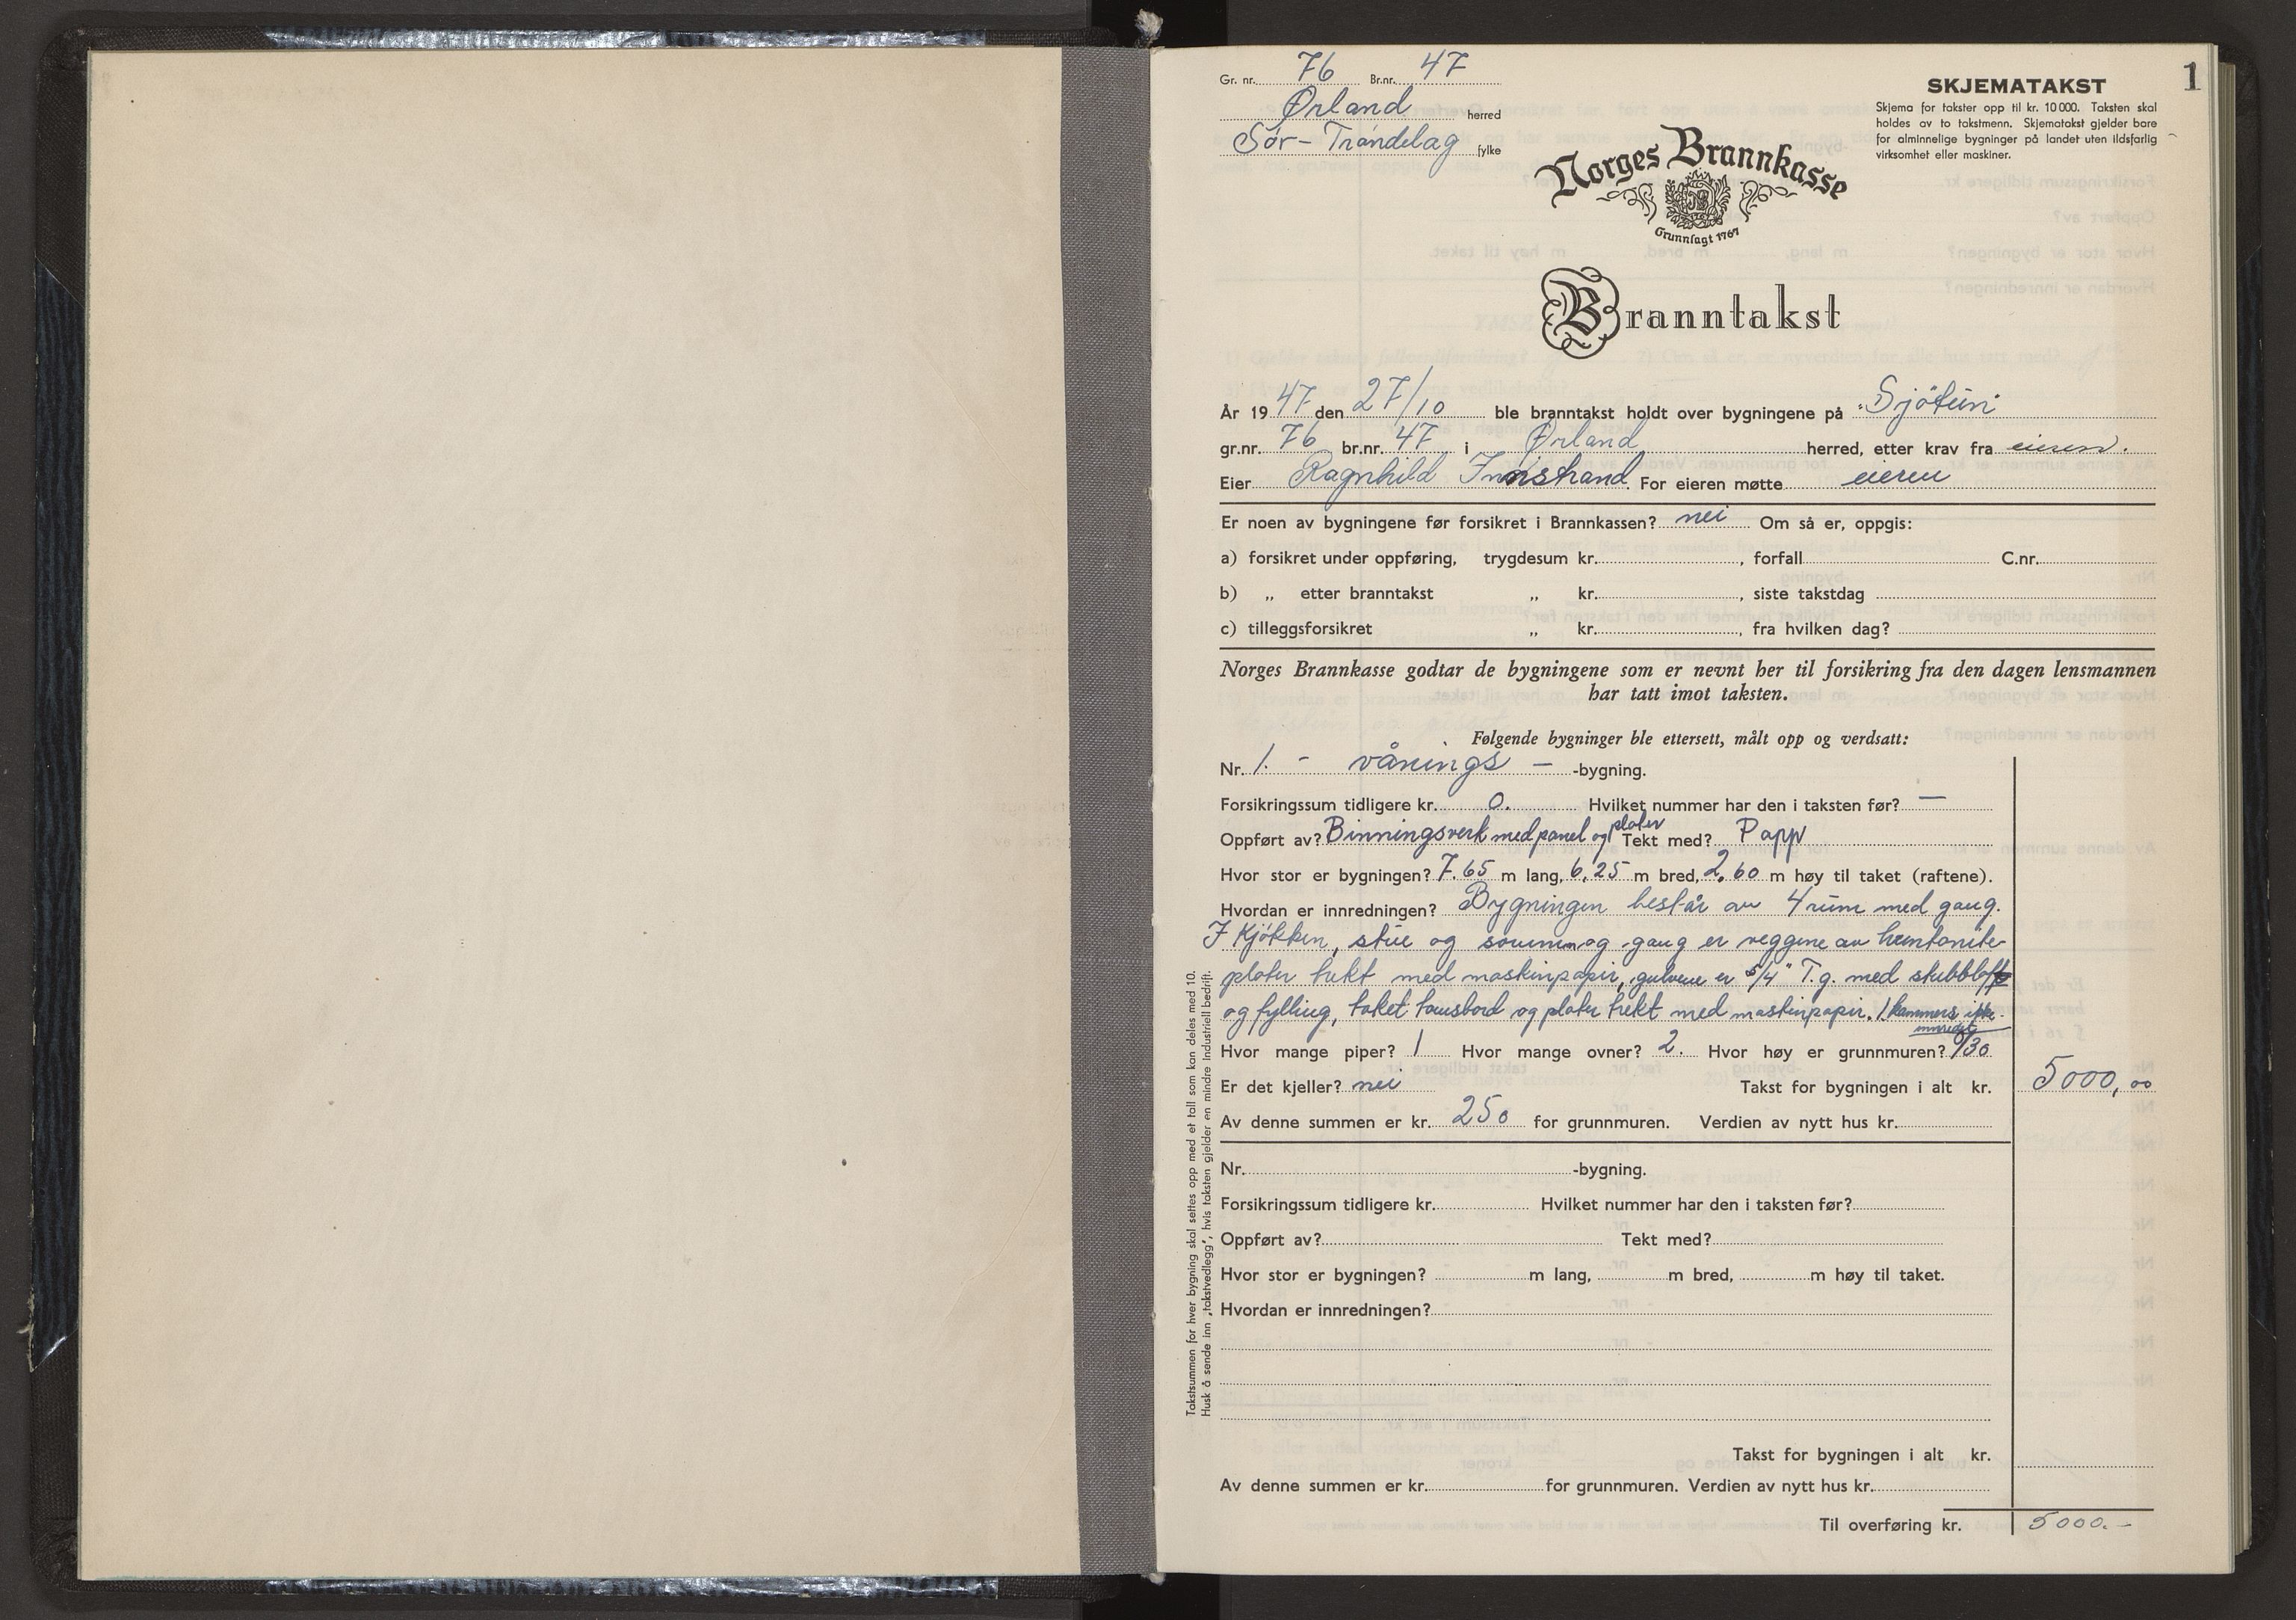 1
Gr. nr. 76 Br.nr. 47
Ørland herred
Sör-Tröndelag fylke
SKJEMATAKST
Skjema for takster opp til kr. 10 000. Taksten skal
holdes av to takstmenn. Skjematakst gjelder bare
for alminnelige bygninger på landet uten ildsfarlig
virksomhet eller maskiner.
Norges Brannkasse
Grunnlagt 1767
Branntakst
År 1947 den 27/10 ble branntakst holdt over bygningene på "Sjötun"
gr.nr. 76 br.nr. 47 i Ørland herred, etter krav fra eieren.
Eier Ragnhild Innstrand. For eieren møtte eieren
Er noen av bygningene før forsikret i Brannkassen? nei Om så er, oppgis:
a) forsikret under oppføring, trygdesum kr. , forfall C.nr.
b) „ etter branntakst „ kr. , siste takstdag
c) tilleggsforsikret „ kr. , fra hvilken dag?
Norges Brannkasse godtar de bygningene som er nevnt her til forsikring fra den dagen lensmannen
har tatt imot taksten.
Følgende bygninger ble ettersett, målt opp og verdsatt:
Nr. 1. - vånings - -bygning.
Forsikringssum tidligere kr. 0. Hvilket nummer har den i taksten før? —
Oppført av? Binningsverk med panel og plater Tekt med? Papp
Hvor stor er bygningen? 7.65 m lang, 6,25 m bred, 2,60 m høy til taket (raftene).
Hvordan er innredningen? Bygningen består av 4 rum med gang.
I Kjökken, stue og og gang er veggene av huntonite-
plater trekt med maskinpapir, gulvene er 5/4" T.g. med stubbloft
og fylling, taket plater trekt med maskinpapir. 1 kammers ikke
innredet
Hvor mange piper? 1 Hvor mange ovner? 2. Hvor høy er grunnmuren? 0/30
Er det kjeller? nei Takst for bygningen i alt kr. 5000,00
Av denne summen er kr. 250 for grunnmuren. Verdien av nytt hus kr.
Nr. -bygning.
Forsikringssum tidligere kr. Hvilket nummer har den i taksten før?
Oppført av? Tekt med?
Hvor stor er bygningen? m lang, m bred, m høy til taket.
Hvordan er innredningen?
Takst for bygningen i alt kr.
Av denne summen er kr. for grunnmuren. Verdien av nytt hus kr.
Til overføring kr. 5000.-
Takstsummen for hver bygning skal settes opp med et tall som kan deles med 10.
Husk å sende inn „takstvedlegg", hvis taksten gjelder en mindre industriell bedrift.